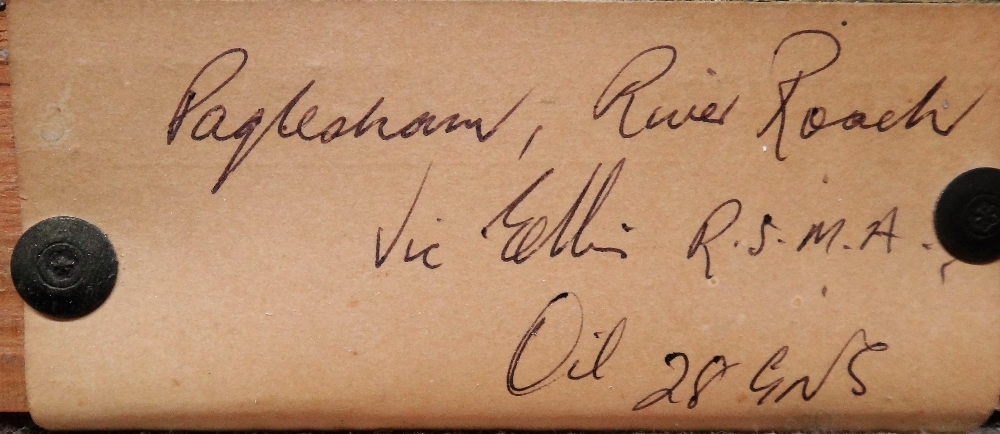 Paglesham, River Roach
Vic Ellis R.S.M.A.
Oil 28 GNS